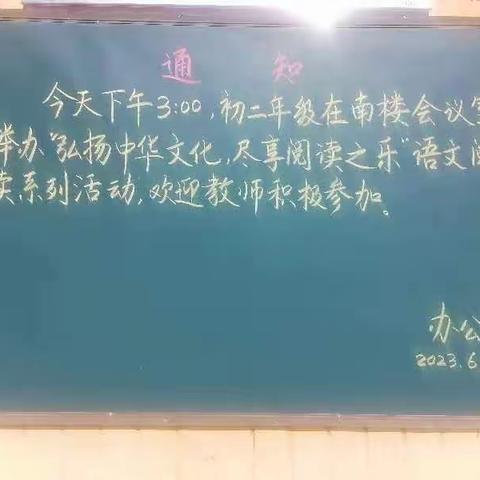 通 知
今天下午3:00,初二年级在南楼会议室
举办“弘扬中华文化,尽享阅读之乐”语文阅
读系列活动,欢迎教师积极参加。
办公
2023.6